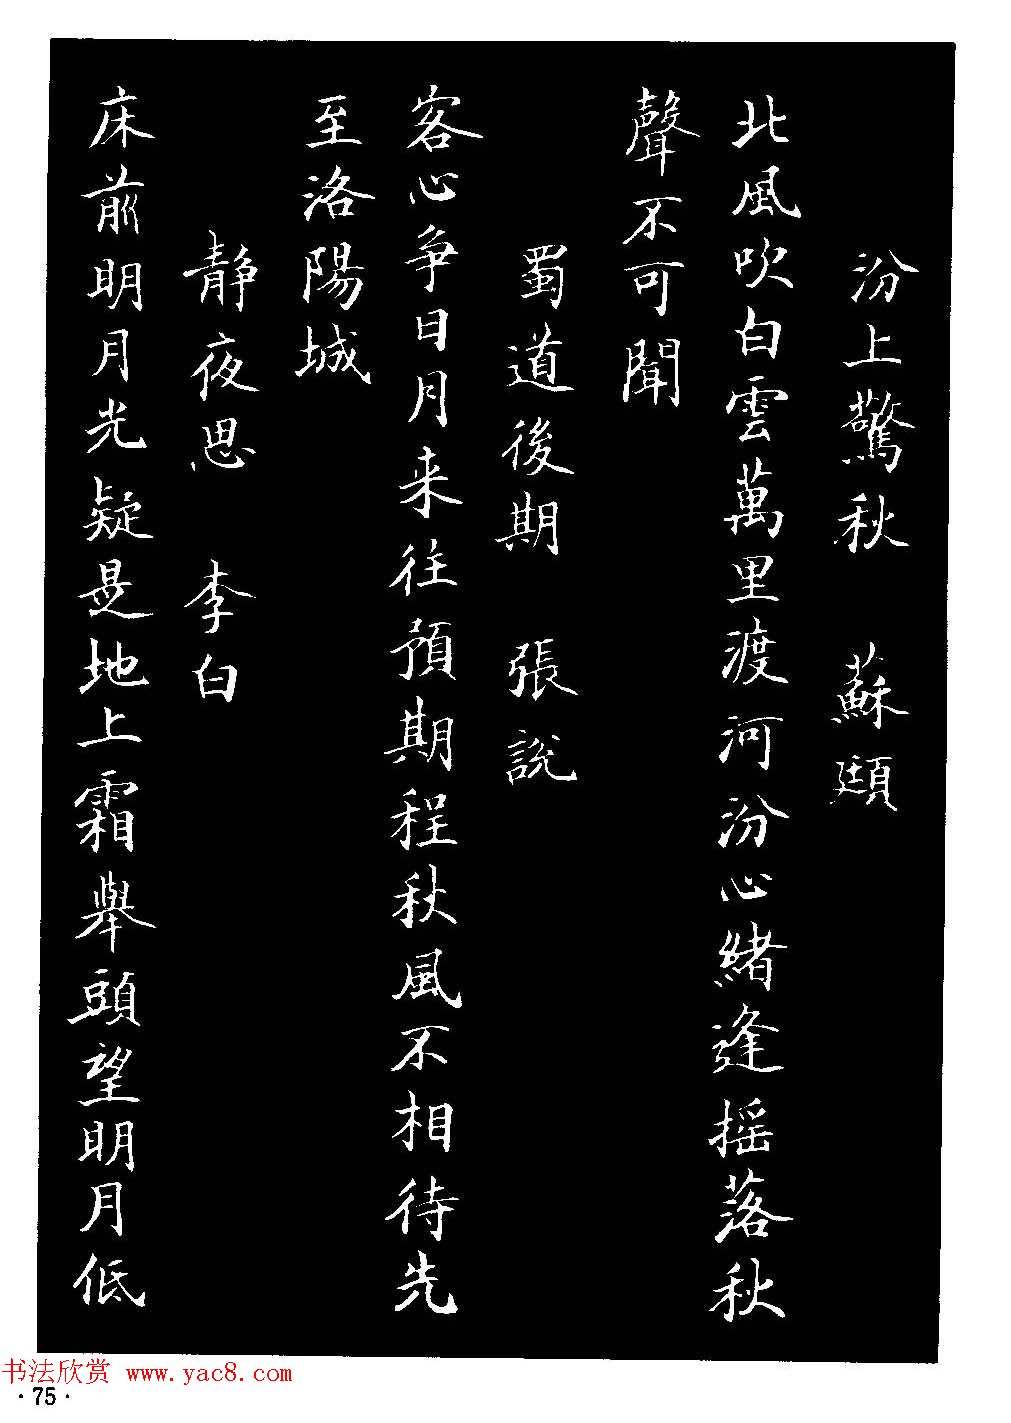 汾上驚秋　蘇頲
北風吹白雲萬里渡河汾心緒逢摇落秋
聲不可聞
蜀道後期　張説
客心争日月来往預期程秋風不相待先
至洛陽城
静夜思　李白
床前明月光疑是地上霜舉頭望明月低
书法欣赏 www.yac8.com
·75·